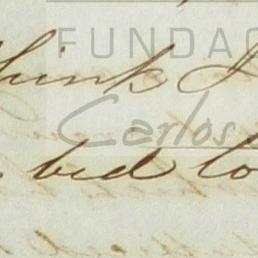 FUNDAC
think I
Carlos
bid to